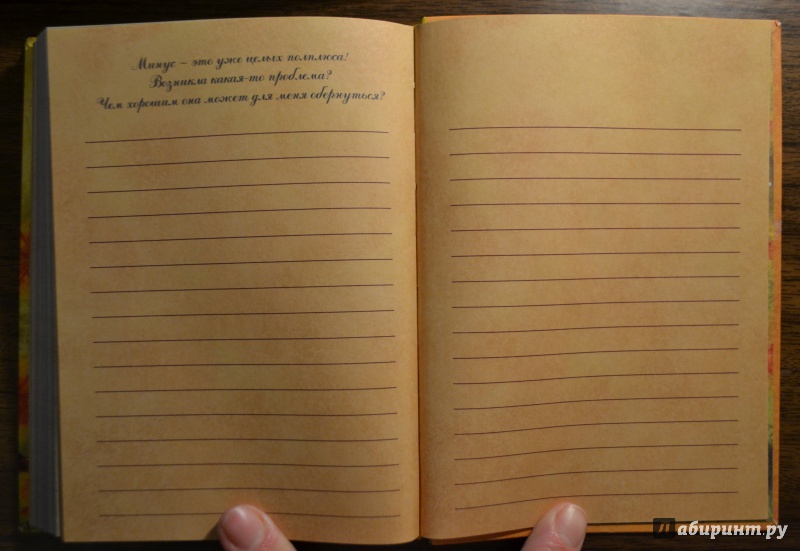 Минус – это уже целых полплюса!
Возникла какая-то проблема?
Чем хорошим она может для меня обернуться?
Лабиринт.ру